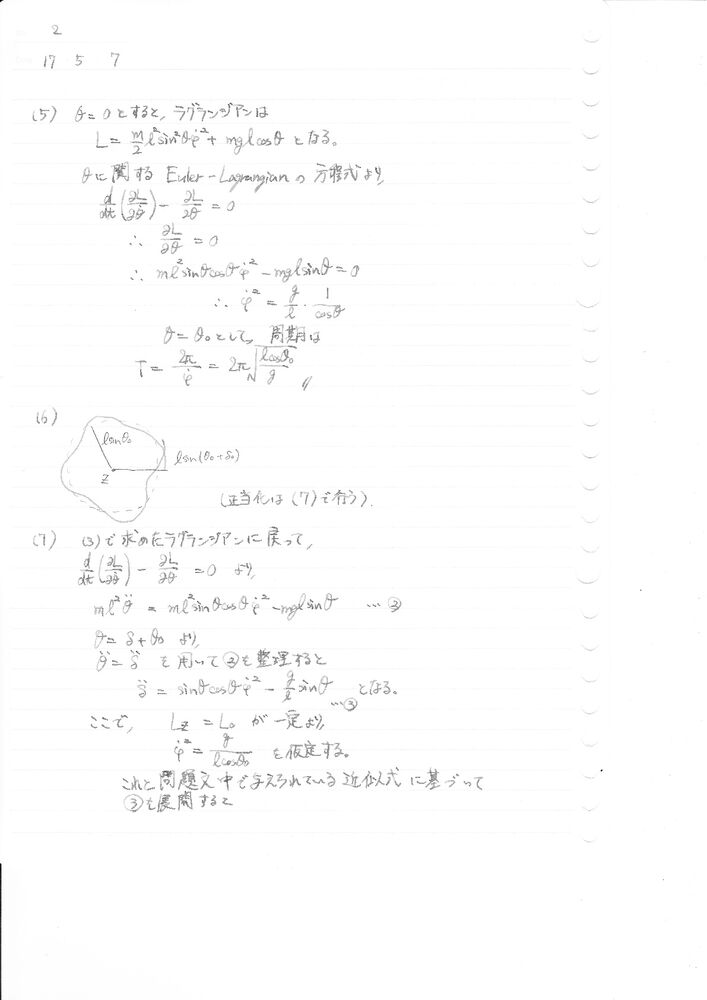 2
17 5 7
(5) θ=0とすると, ラグランジアンは
L = m/2 l² sin²θ φ̇² + mglcosθ となる。
θに関する Euler-Lagrangian の方程式より,
d/dt(∂L/∂θ̇) - ∂L/∂θ = 0
∴ ∂L/∂θ = 0
∴ ml² sinθcosθ φ̇² - mglsinθ = 0
∴ φ̇² = g/l · 1/cosθ
θ=θ₀として, 周期は
T = 2π/φ̇ = 2π√(lcosθ₀/g) 〃
(6)
lsinθ₀
lsin(θ₀+δ₀)
z
(正当化は(7)で行う).
(7) (3)で求めたラグランジアンに戻って,
d/dt(∂L/∂θ̇) - ∂L/∂θ = 0 より,
ml²θ̈ = ml² sinθcosθ φ̇² - mglsinθ …②
θ = δ+θ₀ より,
θ̈ = δ̈ を用いて②を整理すると
δ̈ = sinθcosθ φ̇² - g/l sinθ となる。
…③
ここで, L_z = L₀ が一定より,
φ̇² = g/(lcosθ₀) を仮定する。
これと問題文中で与えられている近似式に基づいて
③を展開すると